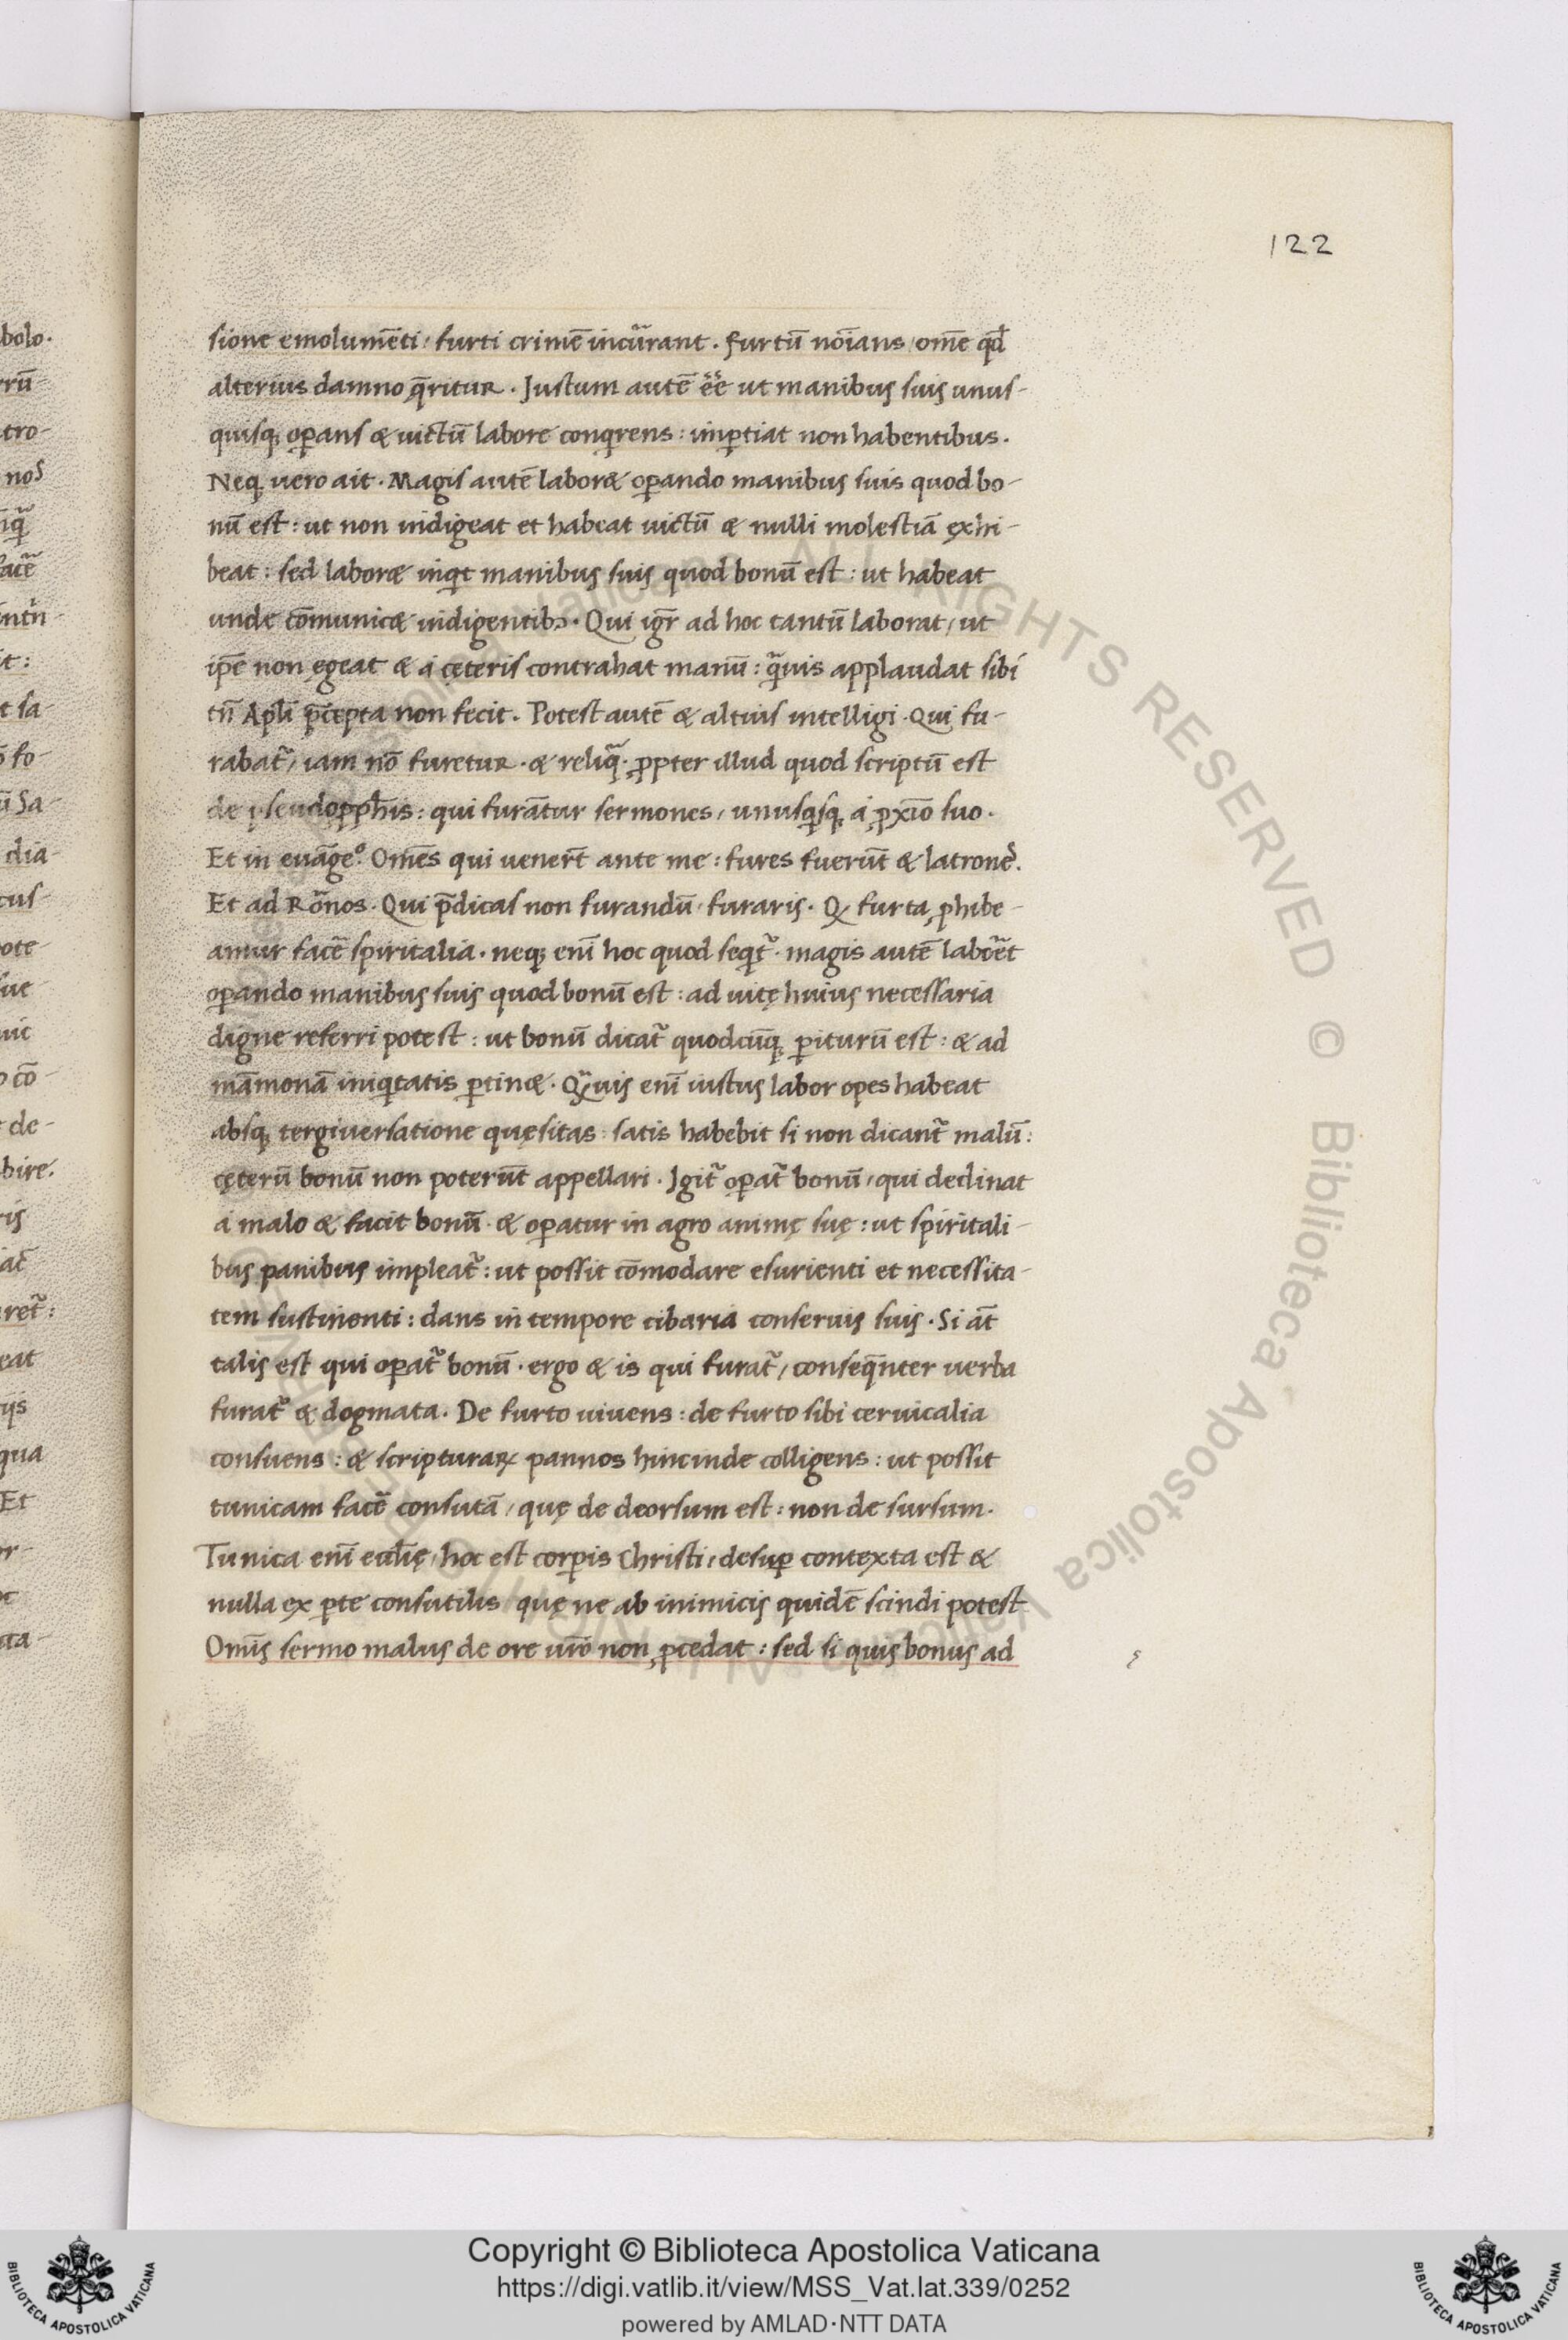 122
sione emolumēti / furti crimē incurrant . furtū noīans / om̄e qđ
alterius damno q̄ritur . Justum autē eē̄ ut manibus suis unus-
quisq; oꝑans & uictū labore conqrens : imꝑtiat non habentibus .
Neq; uero ait . Magis autē labor& oꝑando manibus suis quod bo-
nū est : ut non indigeat et habeat uictū & nulli molestiā exhi-
beat : sed labor& inqit manibus suis quod bonū est : ut habeat
unde cōmunic& indigentibꝫ . Qui igr̄ ad hoc tantū laborat / ut
ip̄e non egeat & a cęteris contrahat manū : q̄uis applaudat sibi
tn̄ Apl̄i p̄cepta non fecit . Potest autē & altius intelligi . Qui fu-
rabat᷑ / iam nō furetur . & reliq̄ . ꝓpter illud quod scriptū est
de pseudoꝓph̄is : qui furāntur sermones / unusqsq; a ꝓxīo suo .
Et in euāgeº. Om̄es qui uener̄t ante me : fures fuerūt & latrones .
Et ad Rōnos . Qui p̄dicas non furandū / furaris . Qꝫ furta ꝓhibe-
amur facē spiritalia . neq; enī hoc quod seqt᷑ . magis autē labor̄et
oꝑando manibus suis quod bonū est : ad uitę huius necessaria
digne referri potest : ut bonū dicat᷑ quodcūq; ꝑiturū est : & ad
māmonā iniqtatis ꝑtin& . Qūis enī iustus labor opes habeat
absq; tergiuersatione quęsitas : satis habebit si non dicant᷑ malū :
cęterū bonū non poterūt appellari . Jgit᷑ oꝑat᷑ bonū / qui declinat
a malo & facit bonū . & oꝑatur in agro animę suę : ut spiritali-
bus panibus impleat᷑ : ut possit cōmodare esurienti et necessita-
tem sustinenti : dans in tempore cibaria conseruis suis . Si āt
talis est qui oꝑat᷑ bonū . ergo & is qui furat᷑ / conseq̄nter uerba
furat᷑ & dogmata . De furto uiuens : de furto sibi ceruicalia
consuens : & scripturaꝝ pannos hincinde colligens : ut possit
tunicam facē consutā / quę de deorsum est : non de sursum .
Tunica enī eccl̄ię / hoc est corꝑis Christi / desuꝑ contexta est &
nulla ex ꝑte consutilis / quę ne ab inimicis quidē scindi potest
Om̄is sermo malus de ore ur̄o non ꝓcedat : sed si quis bonus ad
Copyright © Biblioteca Apostolica Vaticana
https://digi.vatlib.it/view/MSS_Vat.lat.339/0252
powered by AMLAD·NTT DATA